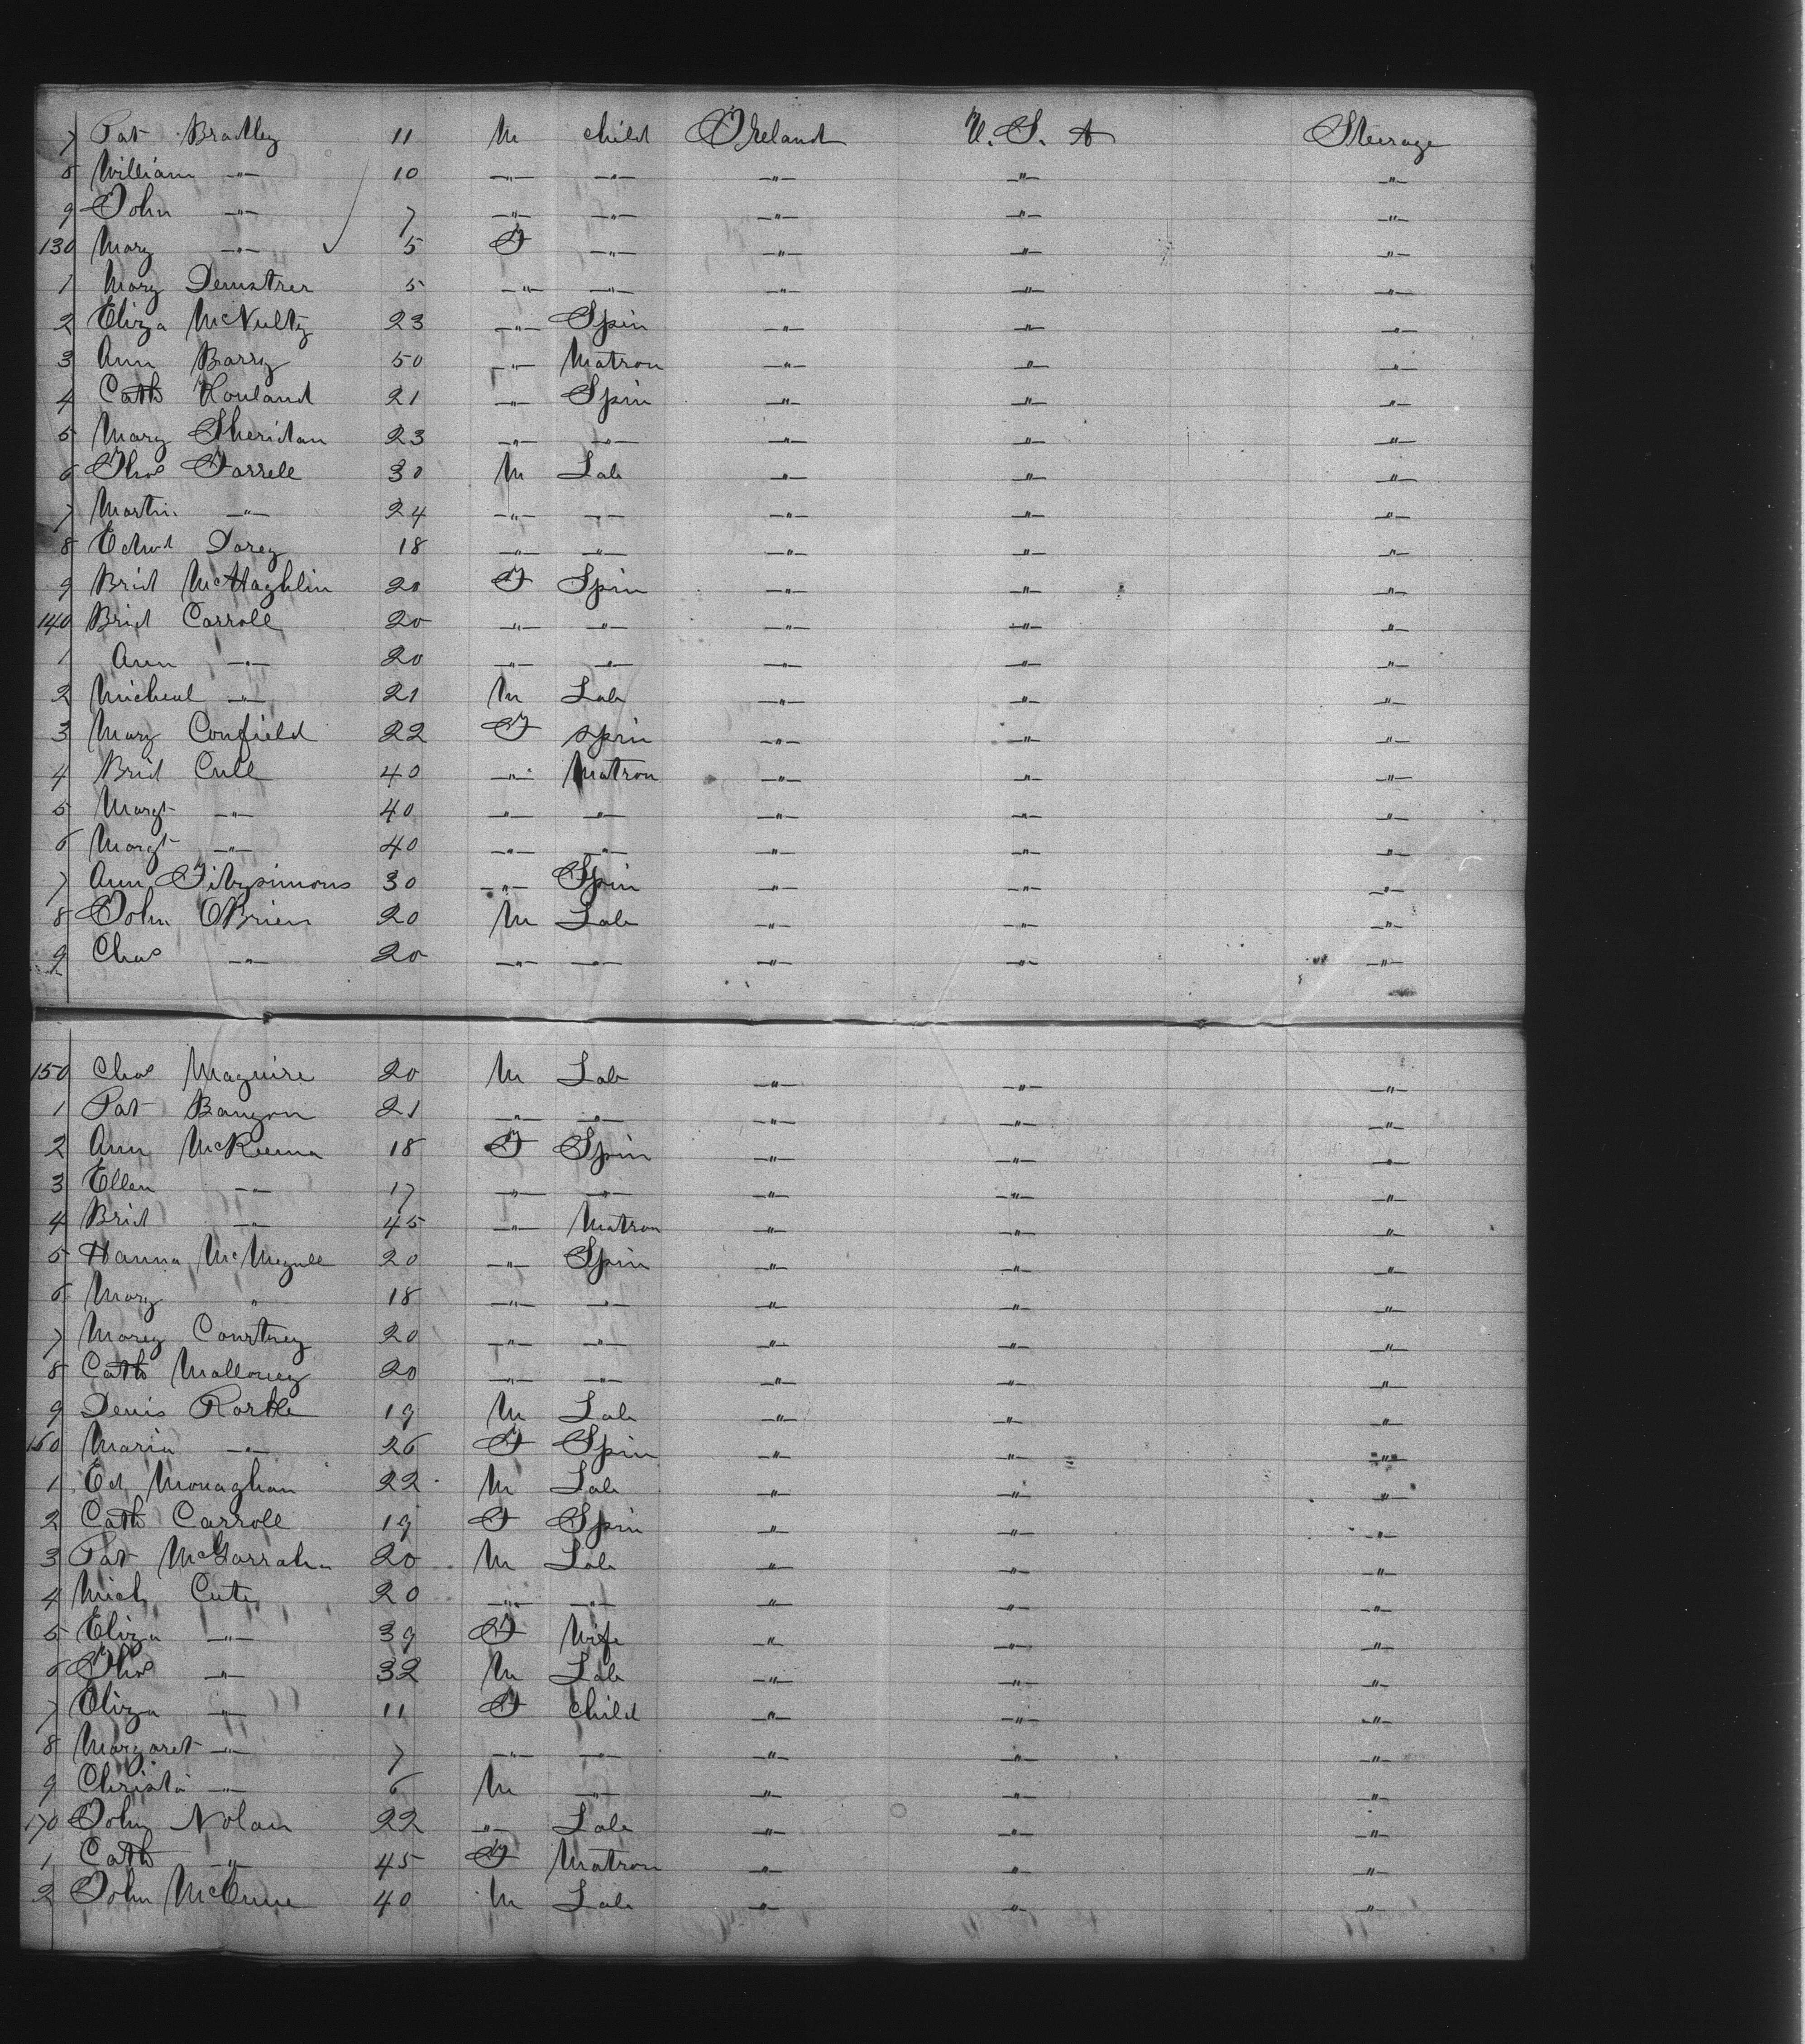 7 Pat Bradley 11 M child Ireland U.S. A Steerage
8 William -"- 10 -"- -"- -"- -"- -"-
9 John -"- 7 -"- -"- -"- -"- -"-
130 Mary -"- 5 F -"- -"- -"- -"-
1 Mary Demstrer 5 -"- -"- -"- -"- -"-
2 Eliza McNulty 23 -"- Spin -"- -"- -"-
3 Ann Barry 50 -"- Matron -"- -"- -"-
4 Cath Houland 21 -"- Spin -"- -"- -"-
5 Mary Sheridan 23 -"- -"- -"- -"- -"-
6 Thos Farrell 30 M Lab -"- -"- -"-
7 Martin -"- 24 -"- -"- -"- -"- -"-
8 Edwd Darey 18 -"- -"- -"- -"- -"-
9 Brid McHaghlin 20 F Spin -"- -"- -"-
140 Brid Carroll 20 -"- -"- -"- -"- -"-
1 Ann -"- 20 -"- -"- -"- -"- -"-
2 Micheal -"- 21 M Lab -"- -"- -"-
3 Mary Confield 22 F Spin -"- -"- -"-
4 Brid Cull 40 -"- Matron -"- -"- -"-
5 Margt -"- 40 -"- -"- -"- -"- -"-
6 Margt -"- 40 -"- -"- -"- -"- -"-
7 Ann Fitzsimons 30 -"- Spin -"- -"- -"-
8 John OBrien 20 M Lab -"- -"- -"-
9 Chas -"- 20 -"- -"- -"- -"- -"-
150 Chas Maguire 20 M Lab -"- -"- -"-
1 Pat Bangon 21 -"- -"- -"- -"- -"-
2 Ann McKenna 18 F Spin -"- -"- -"-
3 Ellen -"- 17 -"- -"- -"- -"- -"-
4 Brid -"- 45 -"- Matron -"- -"- -"-
5 Hanna 20 -"- Spin -"- -"- -"-
6 Mary " 18 -"- -"- -"- -"- -"-
7 Marey Courtney 20 -"- -"- -"- -"- -"-
8 Cath Malloney 20 -"- -"- -"- -"- -"-
9 Denis Rorke 19 M Lab -"- -"- -"-
160 Maria -"- 26 F Spin -"- -"- -"-
1 Ed Monaghan 22 M Lab -"- -"- -"-
2 Cath Carroll 19 F Spin -"- -"- -"-
3 Pat McGarraha 20 M Lab -"- -"- -"-
4 Mich Cute 20 -"- -"- -"- -"- -"-
5 Eliza -"- 39 F Wife -"- -"- -"-
6 Thos -"- 32 M Lab -"- -"- -"-
7 Eliza -"- 11 F child -"- -"- -"-
8 Margaret -"- 7 -"- -"- -"- -"- -"-
9 Christo -"- 6 M -"- -"- -"- -"-
170 John Nolan 22 -"- Lab -"- -"- -"-
1 Cath -"- 45 F Matron -"- -"- -"-
2 John 40 M Lab -"- -"- -"-